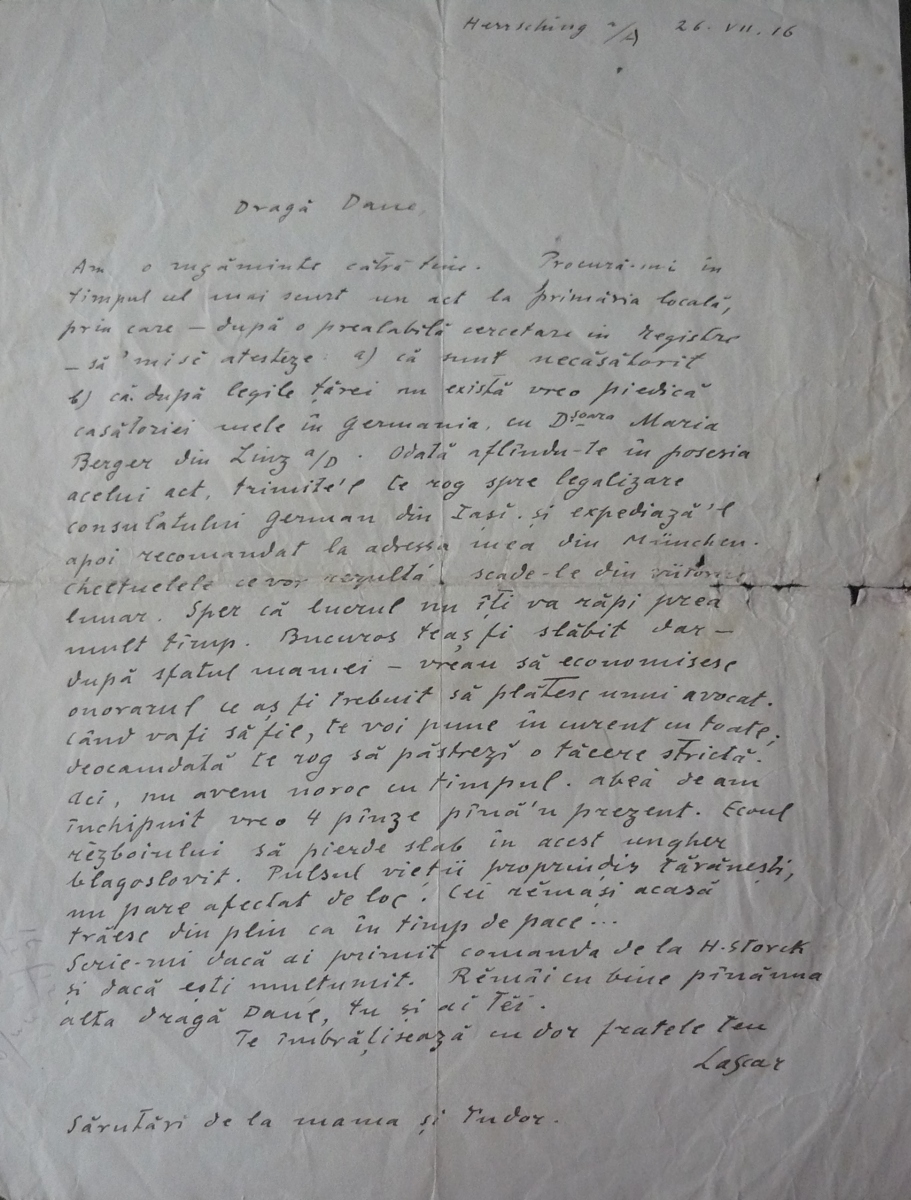 Herrsching a/A 26. VII. 16
Dragă Dane,
Am o rugăminte cătră tine. Procură-mi în
timpul cel mai scurt un act la primăria locală,
prin care – după o prealabilă cercetare in registre
– să 'misă atesteze: a) că sunt necăsătorit
b) că după legile țărei nu există vreo piedică
casătoriei mele în Germania, cu Dșoara Maria
Berger din Linz a/D. Odată aflîndu-te în posesia
acelui act, trimite'l te rog spre legalizare
consulatului German din Iași. și expediază'l
apoi recomandat la adressa mea din München.
cheltuelele ce vor rezultá, scade-le din viitorul
lunar. Sper că lucrul nu îți va răpi prea
mult timp. Bucuros teaș fi slăbit dar –
după sfatul mamei – vreau să economisesc
onorarul ce aș fi trebuit să plătesc unui avocat.
Când vafi să fie, te voi pune în curent cu toate;
deocamdată te rog să păstrezi o tăcere strictă.
aci, nu avem noroc cu timpul. abeà de am
închipuit vreo 4 pînze pînă'n prezent. Ecoul
rězboiului să pierde slab în acest ungher
blagoslovit. Pulsul vieții propriudis țărănești,
nu pare afectat de loc! Cei rěmași acasă
trăesc din plin ca în timp de pace...
Scrie-mi dacă ai primit comanda de la H. Storck
și dacă ești multumit. Rěmâi cu bine pînănna
alta dragă Dane, tu și ai těi.
Te îmbrățisează cu dor fratele teu
Lascar
Sărutări de la mama și Tudor.